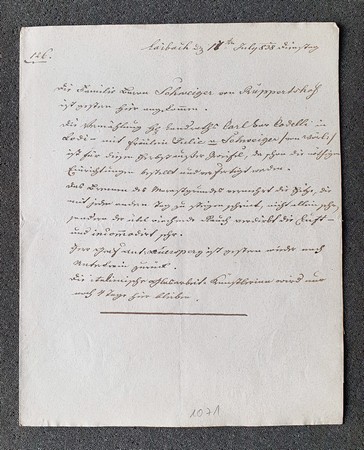 126.
Laibach den 17ten July 838 Dienstag
Die Familie Baron Schweiger von Ruppertshof
ist gestern hier angekommen.
Die Vermählung Carl von Codelli in
Codi mit Fräulein Julie v. Schweiger
ist für diesen Herbst außer Zweifel, da schon die nöthigen
Einrichtungen bestellt und verfertigt werden.
Das Brennen des Morastgrundes vermehrt die Hitze, die
mit jedem andern Tag zu steigen scheint, nicht allein sehr,
sondern der übel riechende Rauch verdirbt die Luft
und incommodirt sehr.
Herr Graf Ant. Auersperg ist gestern wieder nach
zurück.
Die italienische Glasarbeit Künstlerin wird nur
noch 4 Tage hier bleiben.
1071